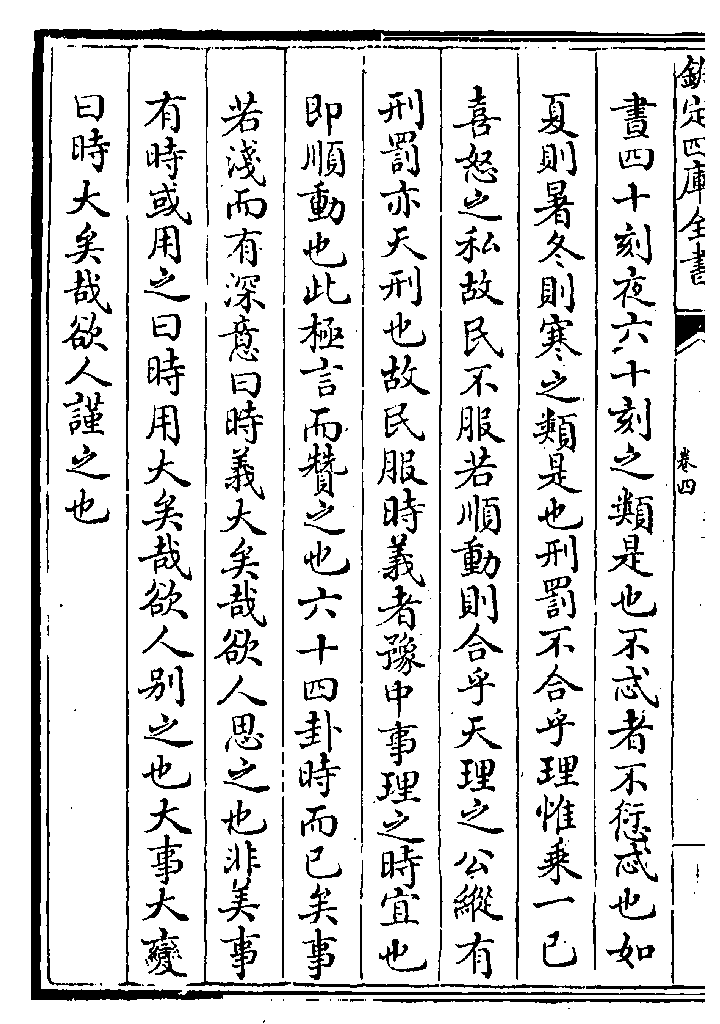 欽定四庫全書
卷四
晝四十刻夜六十刻之類是也不忒者不愆忒也如
夏則暑冬則寒之類是也刑罰不合乎理惟乗一已
喜怒之私故民不服若順動則合乎天理之公縱有
刑罰亦天刑也故民服時義者豫中事理之時宜也
即順動也此極言而贊之也六十四卦時而已矣事
若淺而有深意曰時義大矣哉欲人思之也非美事
有時或用之曰時用大矣哉欲人别之也大事大變
曰時大矣哉欲人謹之也